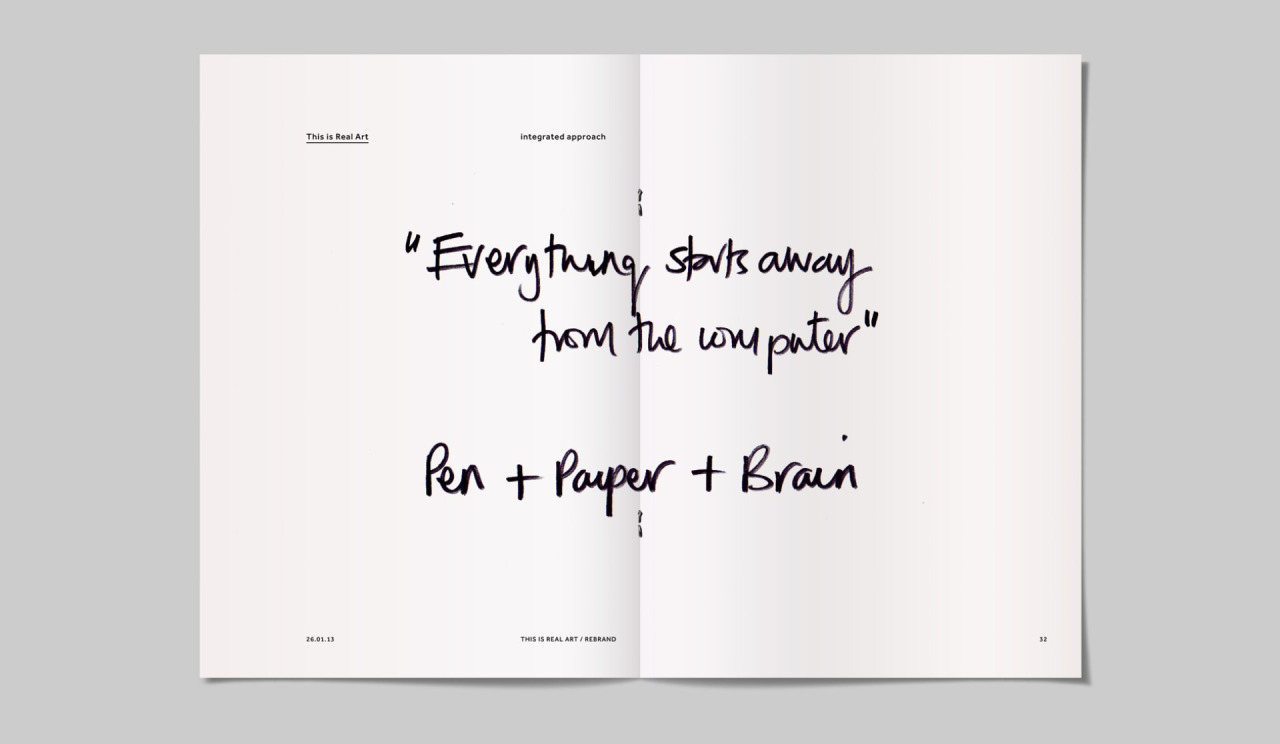 This is Real Art
integrated approach
"Everything starts away
from the computer"
Pen + Paper + Brain
26.01.13
THIS IS REAL ART / REBRAND
32